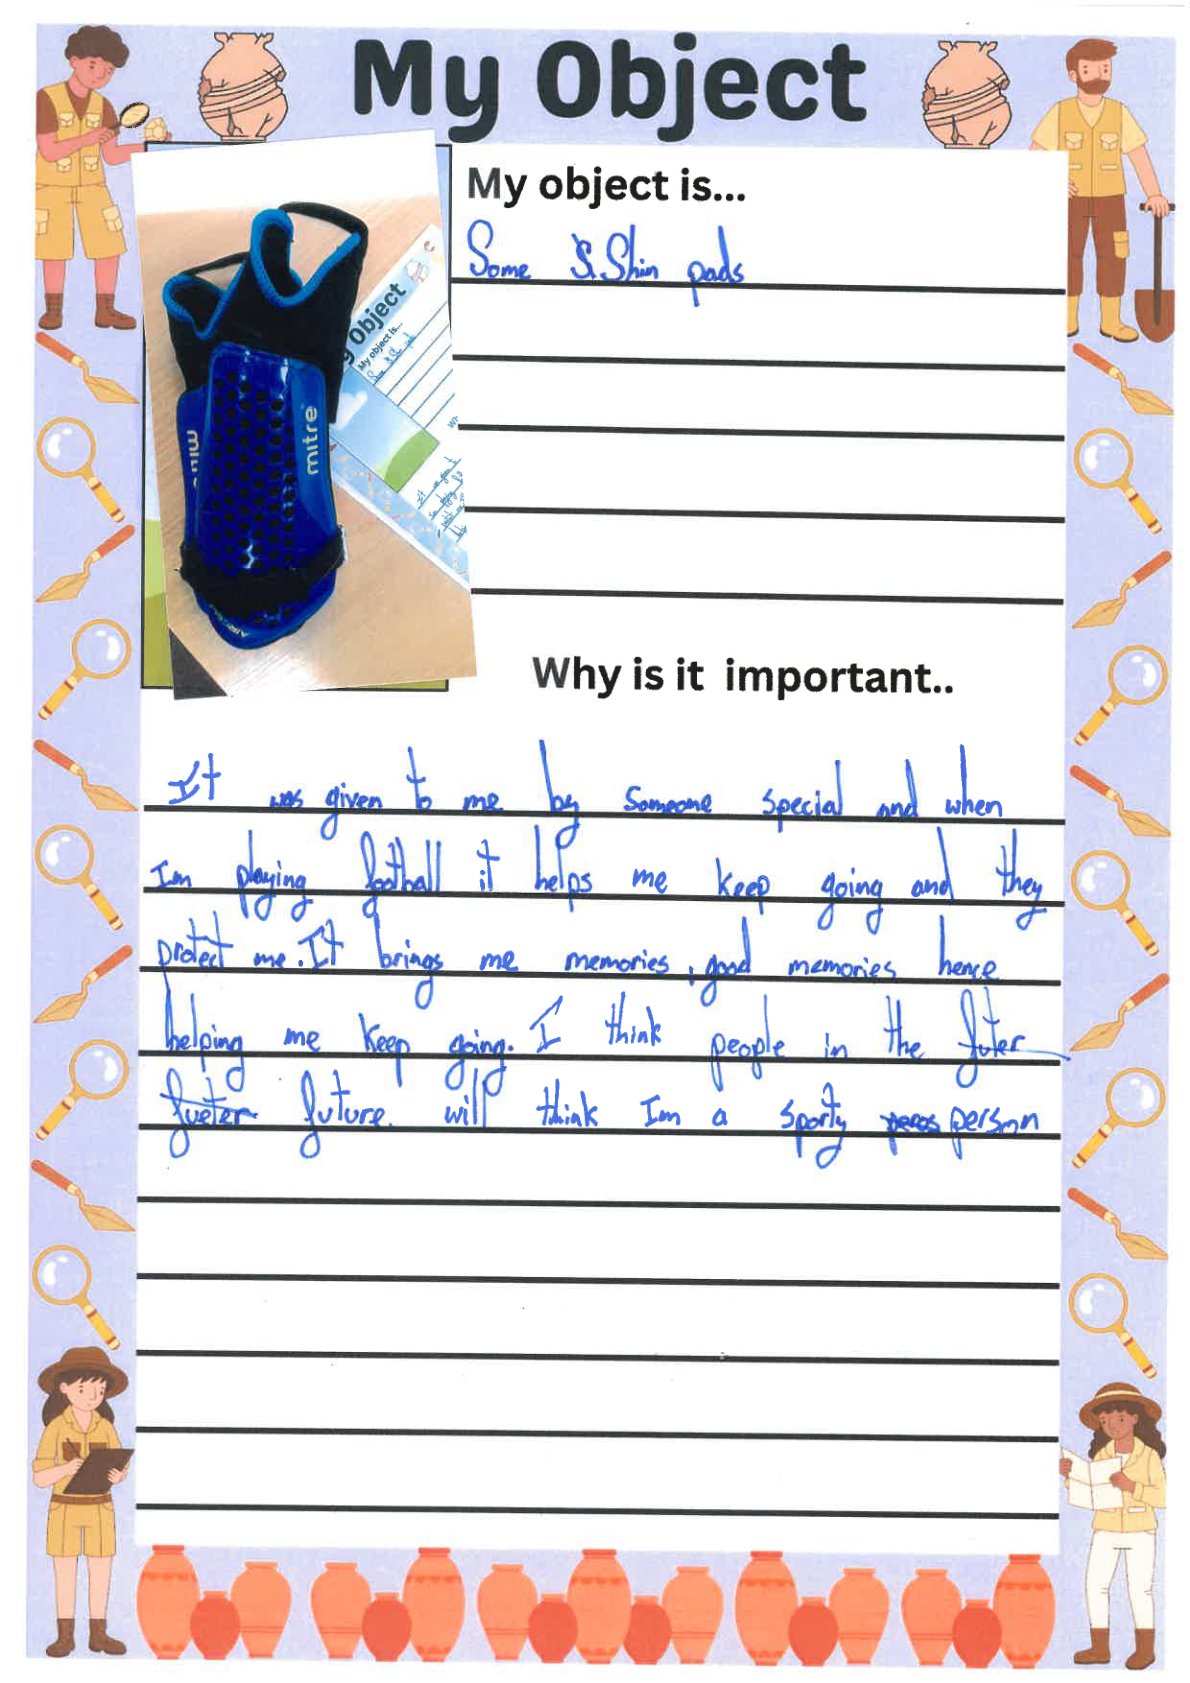 My Object
My object is...
Some S Shin pads
mitre
Object
My object is...
Why is it important..
It was given to me by someone special and when
Im playing football it helps me keep going and they
protect me. It brings me memories, good memories hence
helping me keep going. I think people in the futer
fueter future will think Im a sporty peros person